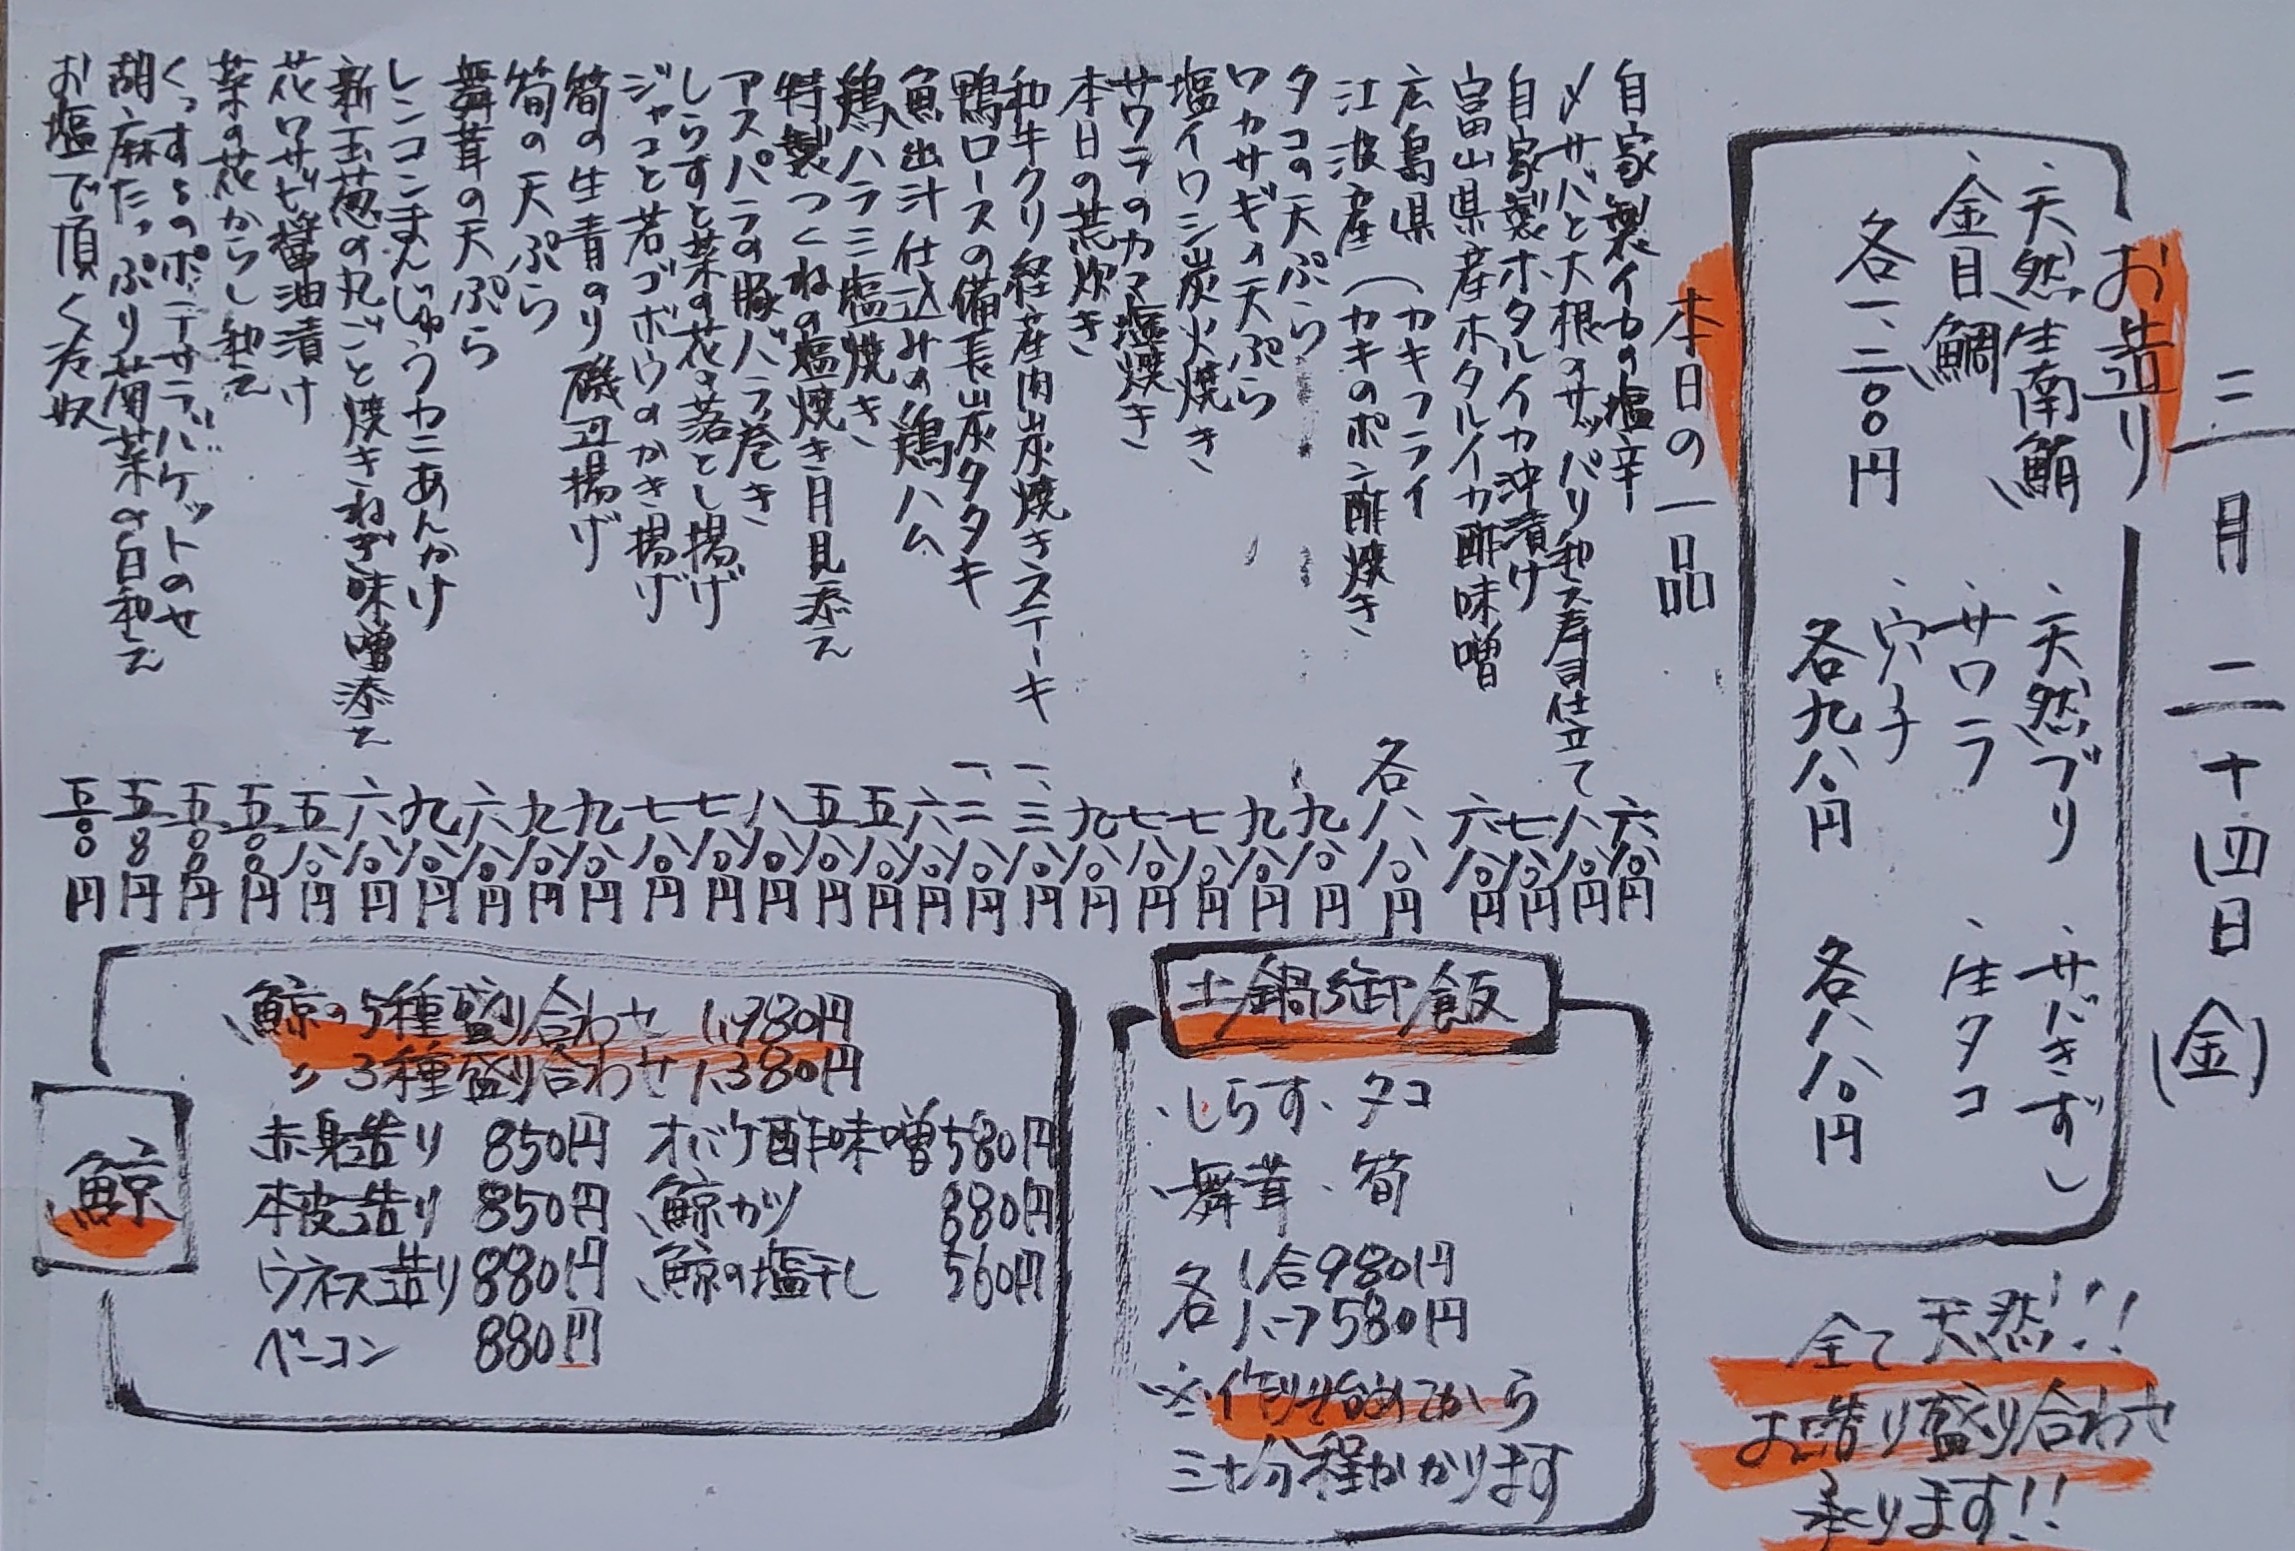 三月二十四日(金)
お造り
、天然生南鮪
、金目鯛
各一、二〇〇円
、天然ブリ
、サワラ
、穴子
各九八〇円
、サバきずし
、生タコ
各八八〇円
全て天然!!!
お造り盛り合わせ
承ります!!
本日の一品
自家製イカの塩辛 六八〇円
〆サバと大根のサッパリ和え寿司仕立て 八八〇円
自家製ホタルイカ沖漬け 七八〇円
富山県産ホタルイカ酢味噌 六八〇円
広島県(カキフライ
江波産(カキのポン酢焼き 各八八〇円
タコの天ぷら 九八〇円
ワカサギの天ぷら 九八〇円
塩イワシ炭火焼き 七八〇円
サワラのカマ塩焼き 七八〇円
本日の荒炊き 九八〇円
和牛クリ経産肉炭焼きステーキ 一、三八〇円
鴨ロースの備長炭タタキ 一、二八〇円
魚出汁仕込みの鶏ハム 六八〇円
鶏ハラミ塩焼き 五八〇円
特製つくねの塩焼き月見添え 五八〇円
アスパラの豚バラ巻き 八八〇円
しらすと菜の花の落とし揚げ 七八〇円
ジャコと若ゴボウのかき揚げ 七八〇円
筍の生青のり磯辺揚げ 九八〇円
筍の天ぷら 九八〇円
舞茸の天ぷら 六八〇円
レンコンまんじゅうカニあんかけ 九八〇円
新玉葱の丸ごと焼きねぎ味噌添え 六八〇円
花ワサビ醤油漬け 五八〇円
菜の花からし和え 五〇〇円
くっすんのポテサラバケットのせ 五〇〇円
胡麻たっぷり菊菜の白和え 五〇〇円
お塩で頂く冷奴 五〇〇円
土鍋御飯
、しらす、タコ
、舞茸、筍
各 1合980円
ハーフ580円
※作り始めてから
三十分程かかります
鯨
鯨の5種盛り合わせ 1,980円
〃 3種盛り合わせ 1,380円
赤身造り 850円 オバケ酢味噌 580円
本皮造り 850円 鯨カツ 880円
ウネス造り 880円 鯨の塩干し 560円
ベーコン 880円